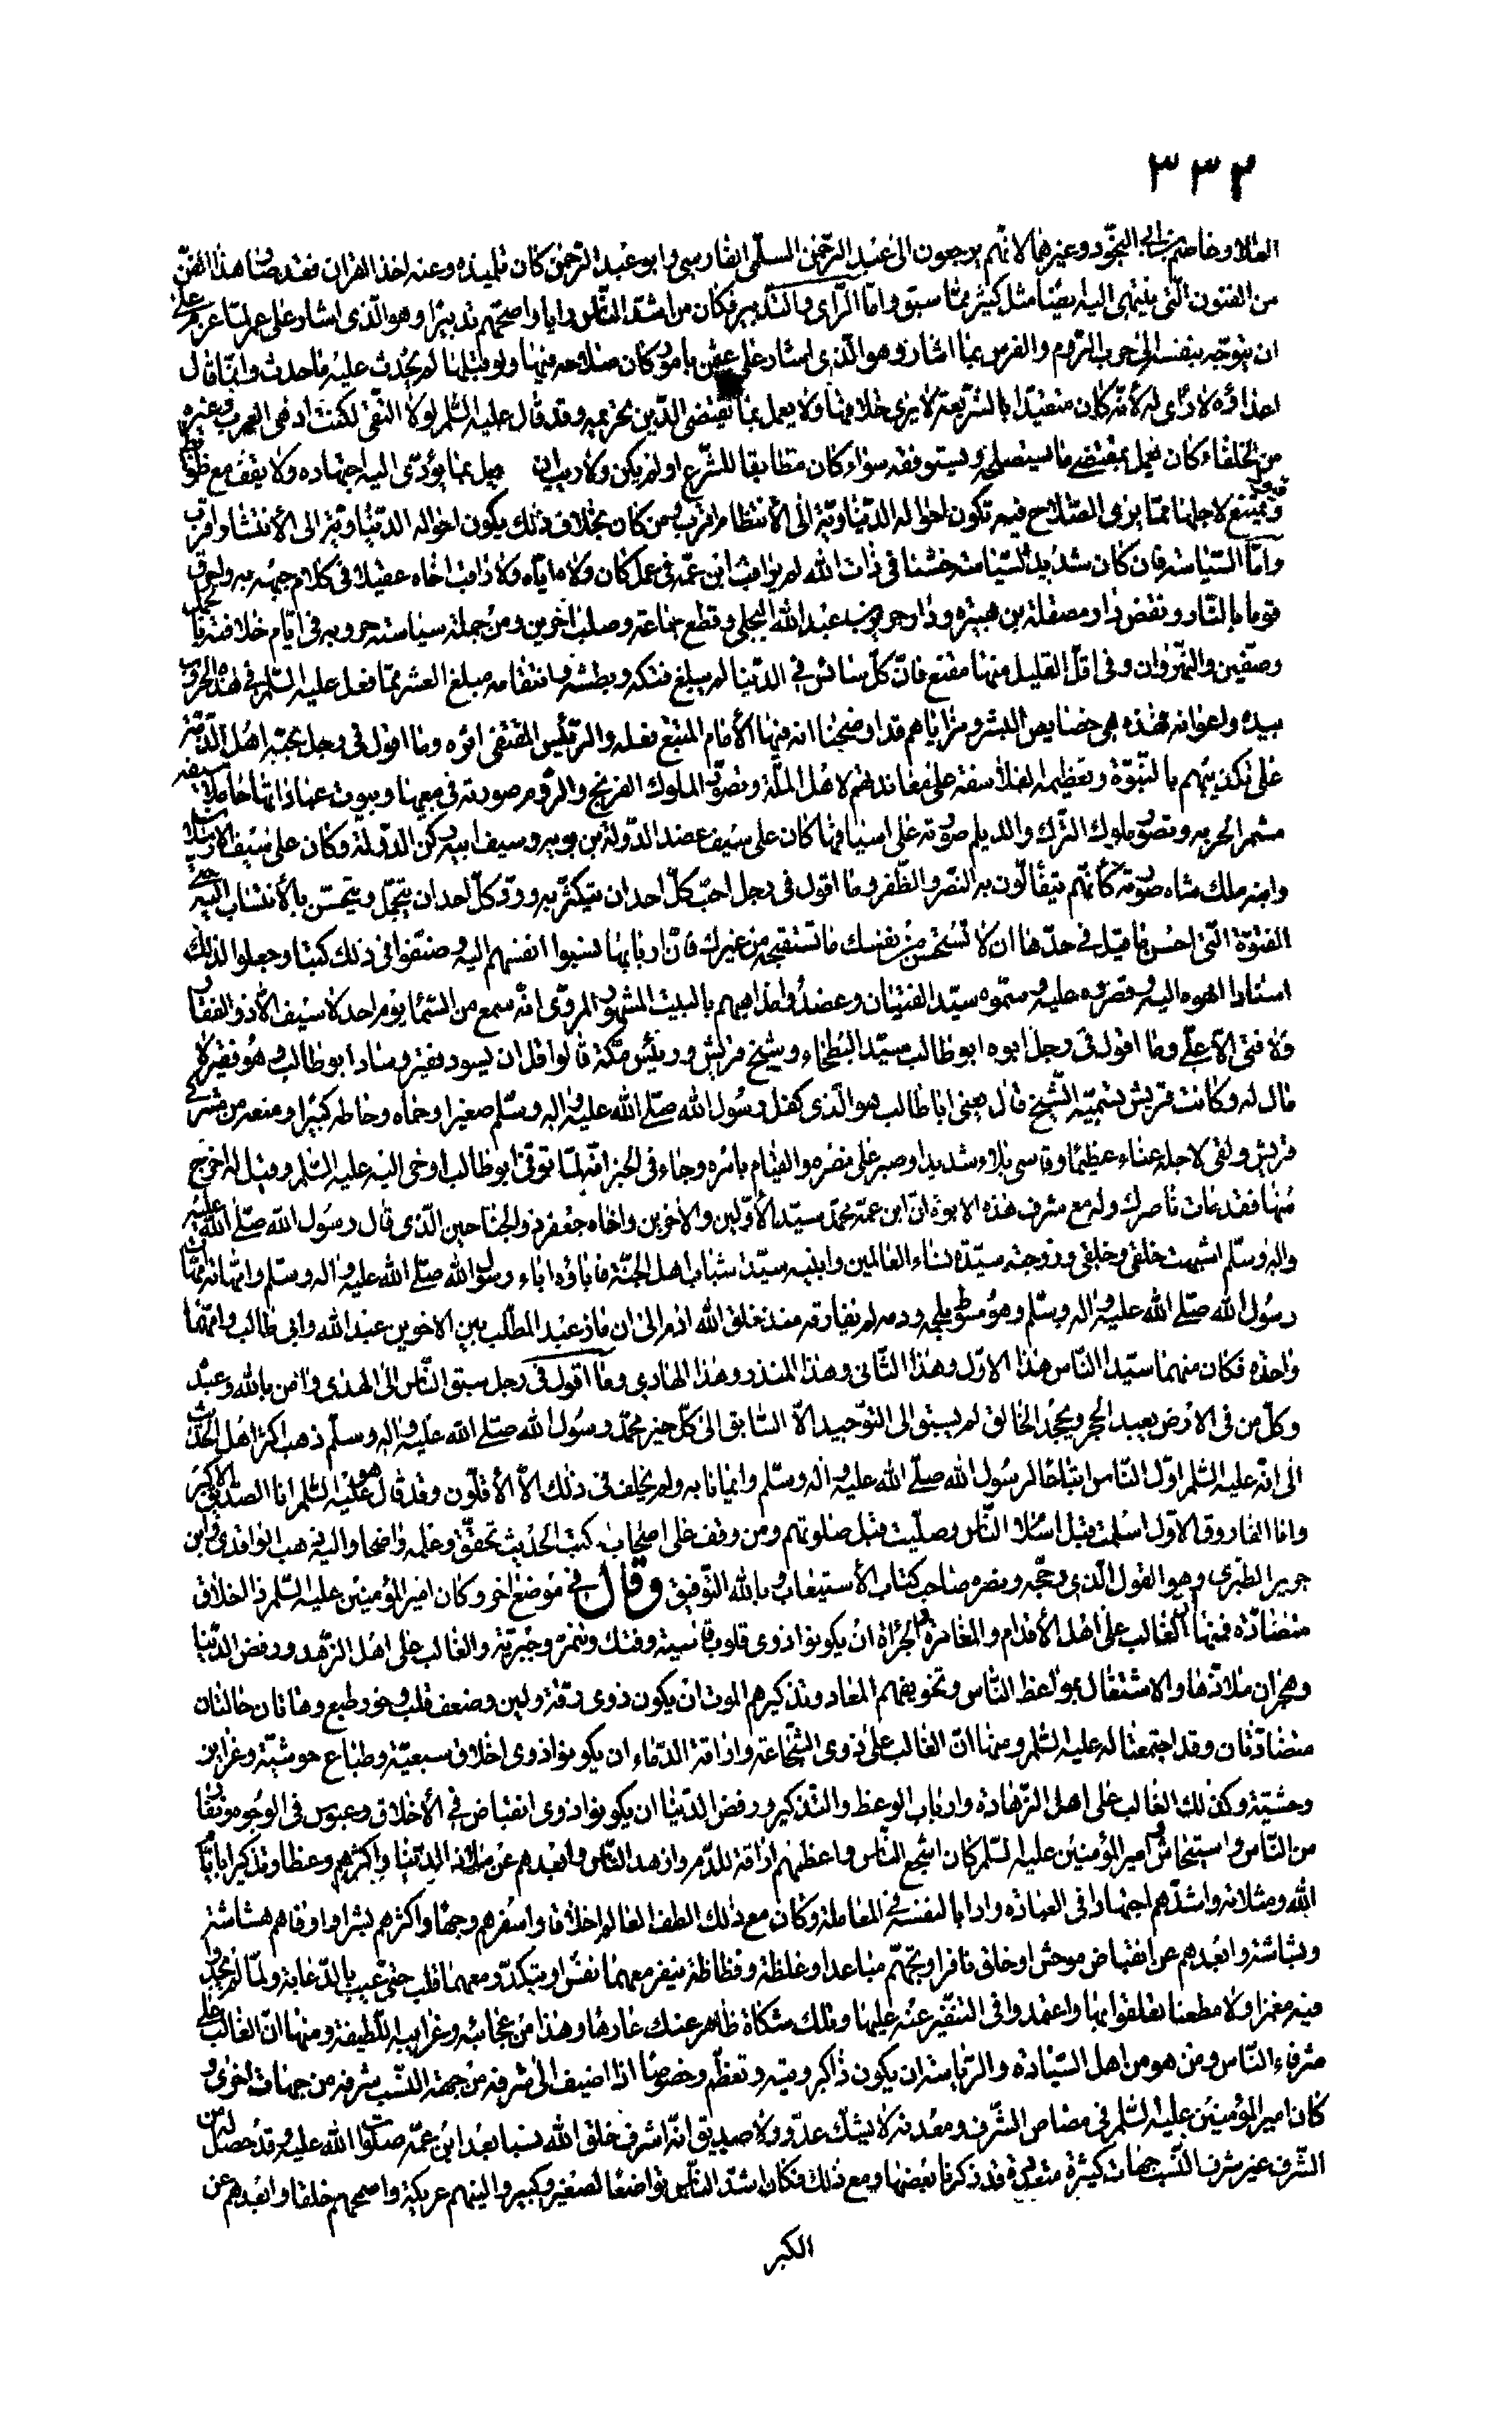 ٣٣٢
العلاء وعاصم بن ابى النجود وغيرهما لانهم يرجعون الى عبد الرحمن السلمى القارى وابو عبد الرحمن كان تلميذه وعنه اخذ القران فقد صار هذا الفن
من الفنون التى ينتهى اليه ايضا مثل كثير مما سبق واما الراى والتدبير فكان من اشد الناس رايا واصحهم تدبيرا وهو الذى اشار على عمر لما عزم على
ان يتوجه بنفسه الى حرب الروم والفرس بما اشار وهو الذى اشار على عثمن بامور كان صلاحه فيها ولو قبلها لم يحدث عليه ما حدث وانما قال
اعداؤه لا راى له لأنه كان متقيدا بالشريعة لا يرى خلافها ولا يعمل بما يقتضى الدين تحريمه وقد قال عليه السلم لولا التقى لكنت ادهى العرب وغيره
من الخلفاء كان يعمل بمقتضى ما يستصلحه ويستوفقه سواء كان مطابقا للشرع او لم يكن ولا ريب ان من يعمل بما يؤدى اليه اجتهاده ولا يقف مع ضوابط وقيود
يمتنع لاجلها مما يرى الصلاح فيه تكون احواله الدنياوية الى الأنتظام اقرب ومن كان بخلاف ذلك يكون احواله الدنياوية الى الأنتشار اقرب
واما السياسة فان كان شديد السياسة خشنا فى ذات الله لم يراقب ابن عمه فى عمل كان ولاه اياه ولا راقب اخاه عقيلا فى كلام جبهه به واحرق
قوما بالنار ونقض دار مصقلة بن هبيرة ودار جرير بن عبد الله البجلى وقطع جماعة وصلب اخرين ومن جملة سياسته حروبه فى ايام خلافته بالجمل
وصفين والنهروان وفى اقل القليل منها مقنع فان كل سائس فى الدنيا لم يبلغ فتكه وبطشه وانتقامه مبلغ العشر مما فعل عليه السلم فى هذه الحروب
بيده واعوانه فهذه هى خصايص البشر ومزاياهم قد اوضحنا انه فيها الأمام المتبع فعله والرئيس المقتفى اثره وما اقول فى رجل يحبه اهل الذمة
على تكذيبهم بالنبوة وتعظمه الفلاسفة على معاندتهم لاهل الملة وتصور الملوك الفرنج والروم صورته فى بيعها وبيوت عباداتها حاملا سيفه
مشمرا لحربه وتصور ملوك الترك والديلم صورته على اسيافها كان على سيف عضد الدولة بن بويه وسيف ابيه ركن الدولة وكان على سيف الب ارسلان
وابنه ملك شاه صورته كانهم يتفألون به النصر والظفر وما اقول فى رجل احب كل احد ان يتكثر به وود كل احد ان يتجمل ويتحسن بالأنتساب اليه حتى
الفتوة التى احسن ما قيل فى حدها ان لا تستحسن من نفسك ما تستقبحه من غيرك فان اربابها نسبوا انفسهم اليه وصنفوا فى ذلك كتبا وجعلوا لذلك
اسنادا انهوه اليه وقصروه عليه وسموه سيد الفتيان وعضدوا مذاهبهم بالبيت المشهور المروى انه سمع من السماء يوم احد لا سيف الا ذو الفقار
ولا فتى الا على وما اقول فى رجل ابوه ابو طالب سيد البطحاء وشيخ قريش ورئيس مكة قالوا قل ان يسود فقير وساد ابو طالب وهو فقير لا
مال له وكانت قريش تسميه الشيخ قال يعنى ابا طالب هو الذى كفل رسول الله صلى الله عليه واله وسلم صغيرا وحماه وحاطه كبيرا ومنعه من مشركى
قريش ولقى لاجله عناء عظيما وقاسى بلاء شديدا وصبر على نصره والقيام بامره وجاء فى الخبر انه لما توفى ابو طالب اوحى اليه عليه السلم وقيل له اخرج
منها فقد مات ناصرك وله مع شرف هذه الابوة ان ابن عمه محمد سيد الأولين والاخرين واخاه جعفر ذو الجناحين الذى قال رسول الله صلى الله عليه
واله وسلم اشبهت خلقى وخلقى وزوجته سيدة نساء العالمين وابنيه سيدا شباب اهل الجنة فاباؤه اباء رسول الله صلى الله عليه واله وسلم وامهاته امهات
رسول الله صلى الله عليه واله وسلم وهو مسوط بلحمه ودمه لم يفارقه منذ خلق الله ادم الى ان ماز عبد المطلب بين الاخوين عبد الله وابى طالب وامهما
واحدة فكان منهما سيدا الناس هذا الاول وهذا الثانى وهذا المنذر وهذا الهادى وما اقول فى رجل سبق الناس الى الهدى وامن بالله وعبده
وكل من فى الارض يعبد الحجر ويجحد الخالق لم يسبق الى التوحيد الا السابق الى كل خير محمد رسول الله صلى الله عليه واله وسلم ذهب اكثر اهل الحديث
الى انه عليه السلم اول الناس اتباعا لرسول الله صلى الله عليه واله وسلم وايمانا به ولم يخلف فى ذلك الا الأقلون وقد قال هو عليه السلم انا الصديق الاكبر
وانا الفاروق الاول اسلمت قبل اسلام الناس وصليت قبل صلوتهم ومن وقف على اصحاب كتب الحديث تحقق وعلمه واضحا واليه ذهب الواقدى وابن
جرير الطبرى وهو القول الذى رجحه ونصره صاحب كتاب الأستيعاب وبالله التوفيق وقال فى موضع اخر وكان امير المؤمنين عليه السلم ذا خلاق
متضادة فمنها ان الغالب على اهل الأقدام والمغامرة والجرأة ان يكونوا ذوى قلوب قاسية وفتك وتنمر وجبرية والغالب على اهل الزهد ورفض الدنيا
وهجران ملاذها والاشتغال بمواعظ الناس وتخويفهم المعاد وتذكيرهم الموت ان يكون ذوى رقة ولين وضعف قلب وخور طبع وهاتان حالتان
متضادتان وقد اجتمعتا له عليه السلم ومنها ان الغالب على ذوى الشجاعة واراقة الدماء ان يكونوا ذوى اخلاق سبعية وطباع حوشية وغرايز
وحشية وكذلك الغالب على اهل الزهادة وارباب الوعظ والتذكير ورفض الدنيا ان يكونوا ذوى انقباض فى الأخلاق وعبوس فى الوجوه ونفار
من الناس واستيحاش وامير المؤمنين عليه السلم كان اشجع الناس واعظمهم اراقة للدم وازهد الناس وابعدهم عن ملاذ الدنيا واكثرهم وعظا وتذكيرا بايام
الله ومثلاته واشدهم اجتهادا فى العبادة وادابا لنفسه فى المعاملة وكان مع ذلك الطف العالم اخلاقا واسفرهم وجها واكثرهم بشرا واوفاهم هشاشة
وبشاشة وابعدهم عن انقباض موحش او خلق نافر او تجهم مباعد او غلظة وفظاظة ينفر معهما نفس او يتكدر معهما قلب حتى عيب بالدعابة ولما لم يجدوا
فيه مغمزا ولا مطعنا تعلقوا بها واعتمدوا فى التنفير عنه عليها وتلك شكاة ظاهر عنك عارها وهذا من عجائبه وغرايبه اللطيفة ومنها ان الغالب على
شرفاء الناس ومن هو من اهل السيادة والرياسة ان يكون ذا كبر وتيه وتعظم وخصوصا اذا اضيف الى شرفه من جهة النسب شرفه من جهات اخرى و
كان امير المؤمنين عليه السلم فى مصاص الشرف ومعدنه لا يشك عدو ولا صديق انه اشرف خلق الله نسبا بعد ابن عمه صلوات الله عليه وقد حصل له من
الشرف غير شرف النسب جهات كثيرة متعددة قد ذكرنا بعضها ومع ذلك فكان اشد الناس تواضعا لصغير وكبير والينهم عريكة واسمحهم خلقا وابعدهم عن
الكبر